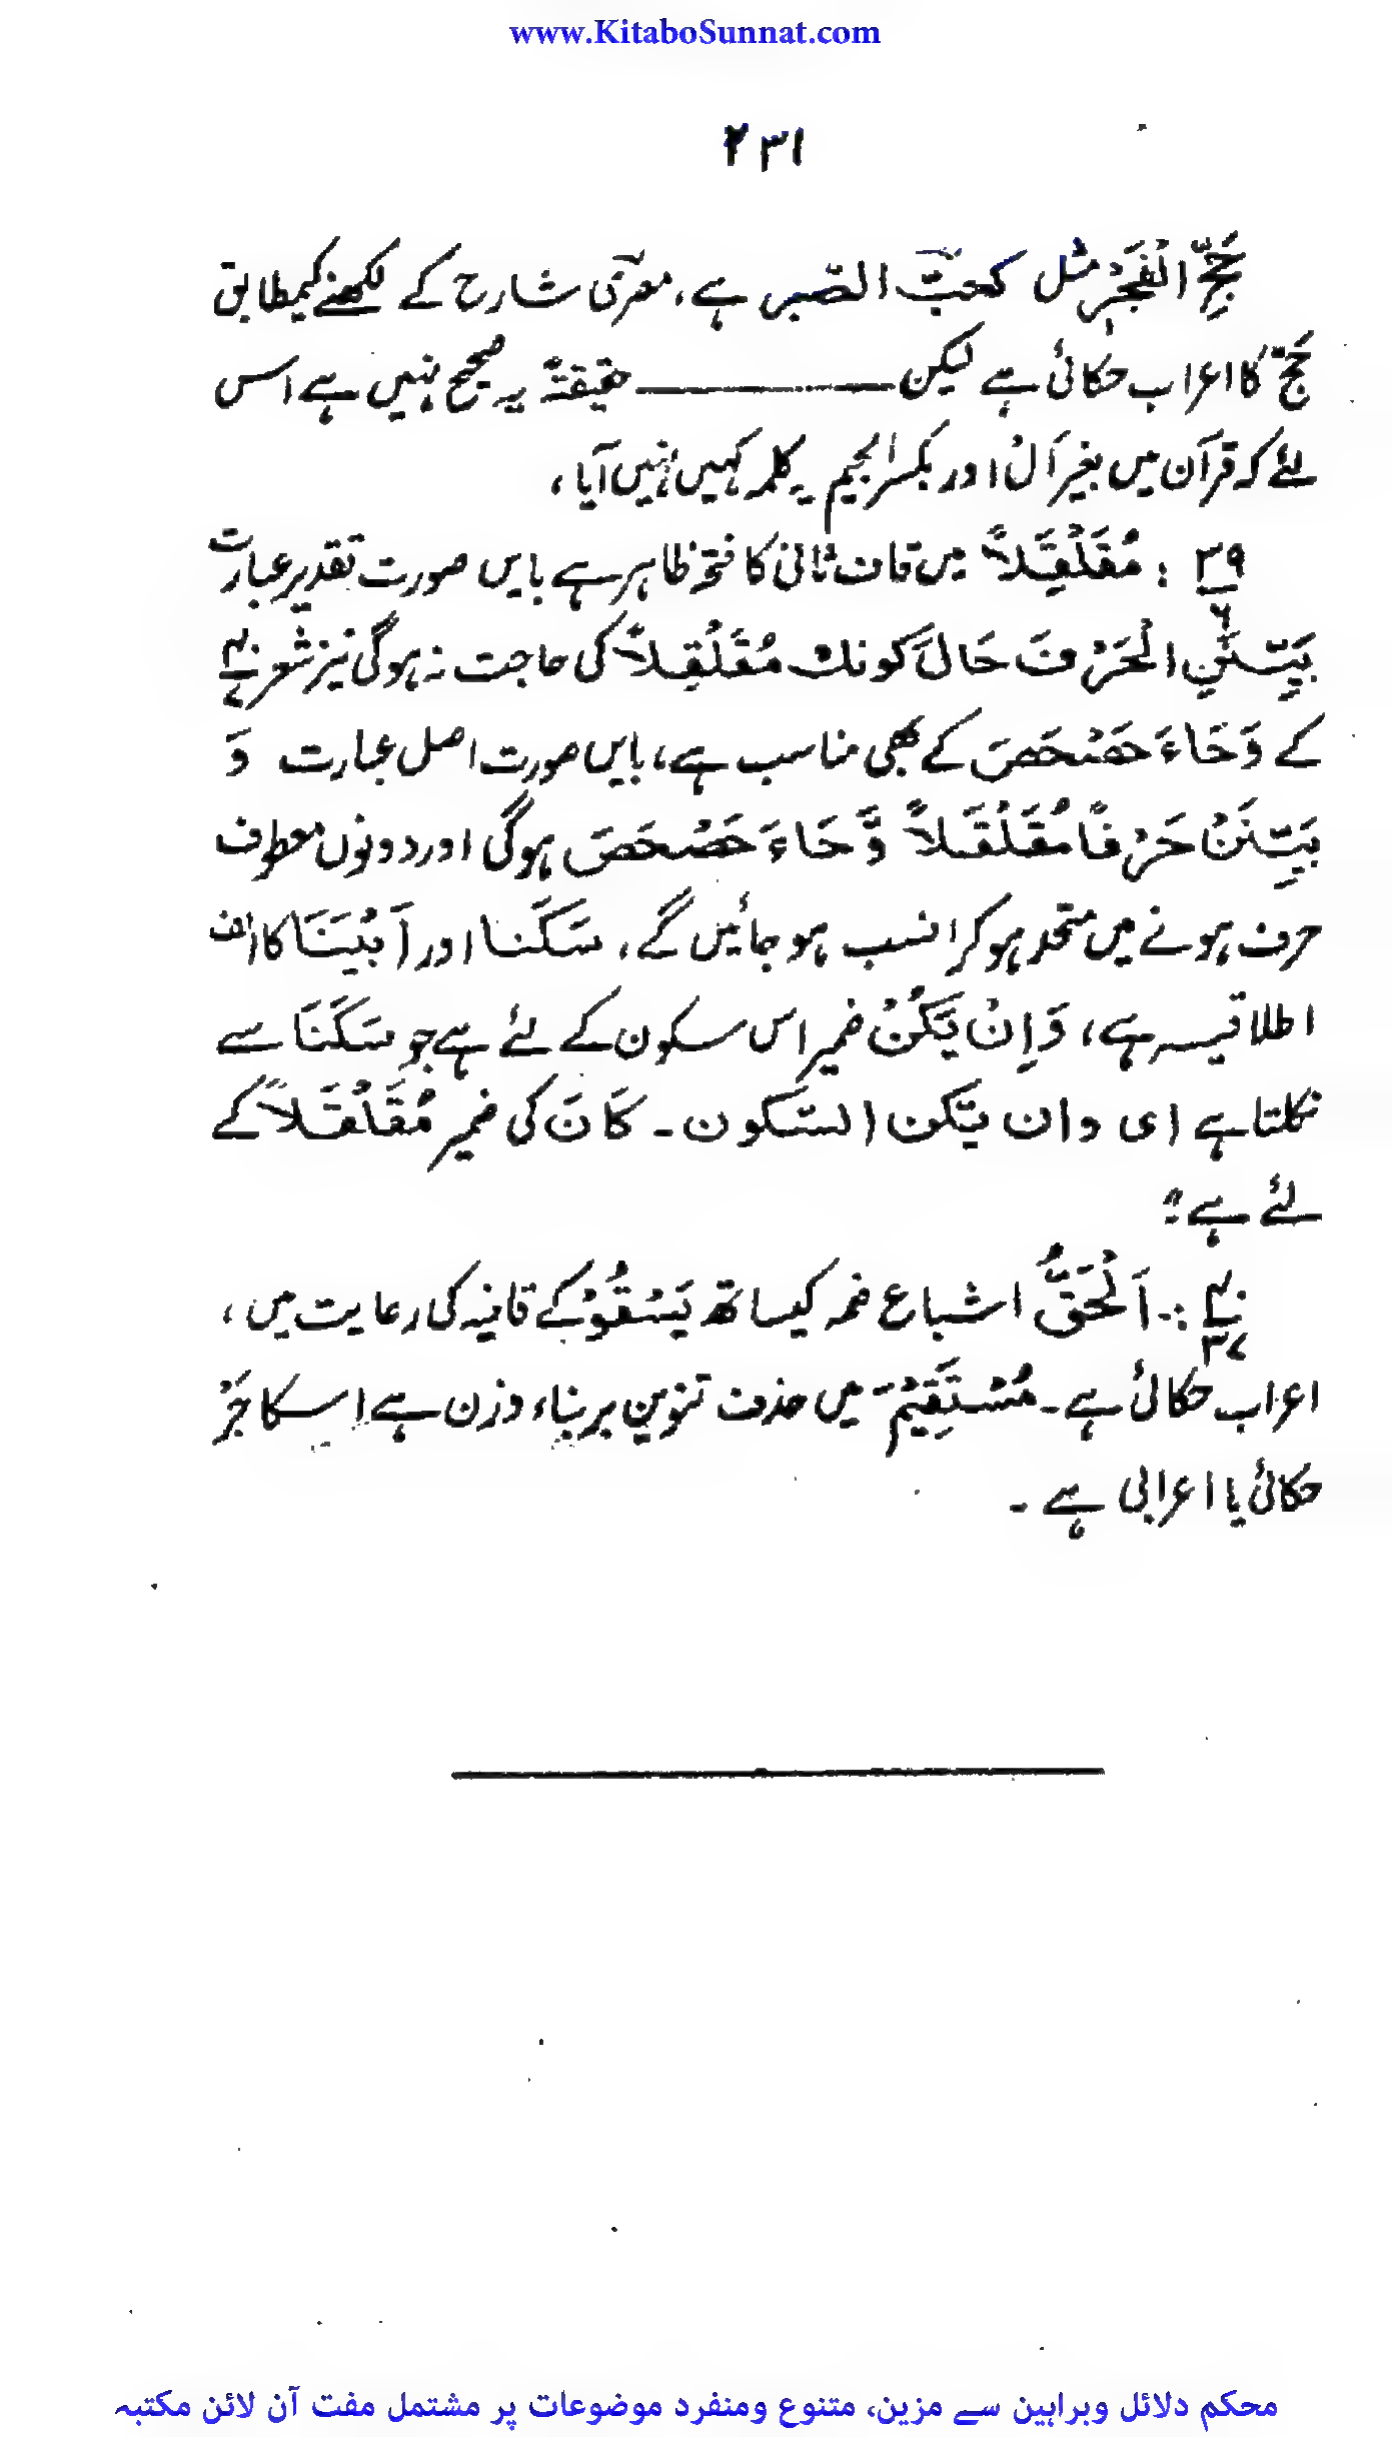 www.KitaboSunnat.com
۲۳۱
حَجِّ الْفَجْرِ مثل کحبّ الصّبر ہے، مصری شارح کے لکھنے کیمطابق
حَجّ کا اعراب حکائی ہے لیکن ــــــــ حقیقتۃً یہ صحیح نہیں ہے اسس
لئے کہ قرآن میں بغیر اَلْ اور بکسر الجیم یہ کلمہ کہیں نہیں آیا ،
۳۹ : مُقَلْقَِلاً میں قاف ثانی کا فتحہ ظاہر ہے بایں صورت تقدیر عبارت
۶
بَیِّنَنِ الْحَرْفَ حَالَ کونك مُقَلْقِلاً کی حاجت نہ ہوگی نیز شعر ۴۰
کے وَحَاءَ حَصْحَصَ کے بھی مناسب ہے، بایں صورت اصل عبارت وَ
بَیِّنَنْ حَرْفًا مُقَلْقَلاً وَّحَاءَ حَصْحَصَ ہوگی اور دونوں معطوف
حرف ہونے میں متحد ہو کر انسب ہو جائیں گے، سَكَنَا اور اَبْيَنَا کا الف
اطلاقیہ ہے، وَاِنْ يَّكُنْ ضمیر اس سکون کے لئے ہے جو سَكَنَا سے
نکلتا ہے ای وان یّکن السّکون ۔ کَانَ کی ضمیر مُقَلْقَلاً کے
لئے ہے ؛
۴۰ :۔ اَلْحَقُّ اشباع ضمہ کیساتھ یَسْقُوْ کے قافیہ کی رعایت میں ،
۳۷
اعراب حکائی ہے ۔ مُسْتَقِیْمَ میں حذف تنوین بر بناء وزن ہے اسکا جَرْ
حکائی یا اعرابی ہے ۔
محکم دلائل وبراہین سے مزین، متنوع ومنفرد موضوعات پر مشتمل مفت آن لائن مکتبہ